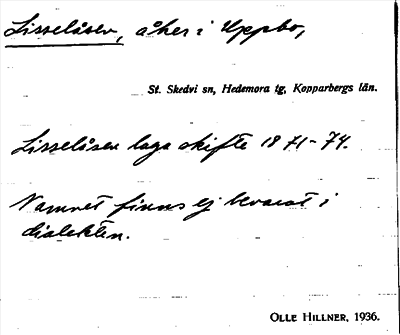 Lisselåsen, åker i Uppbo,
St. Skedvi sn, Hedemora tg, Kopparbergs län.
Lisselåsen laga skifte 1871-74.
Namnet finns ej bevarat i
dialekten.
OLLE HILLNER, 1936.